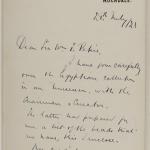 ROCHDALE.
28th July /21
Dear Sir Wm F. Petrie,
I have gone carefully
over the Egyptian collection
in our museum, with the
Chairman & Curator.
The latter has prepared for
me a list of the beads that
we have, this I enclose.